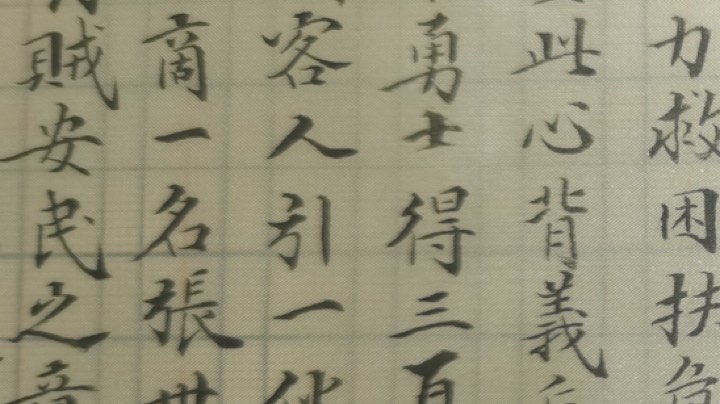 力救困扶危
此心背義
勇士得三百
客人引一
商一名張世
賊安民之意